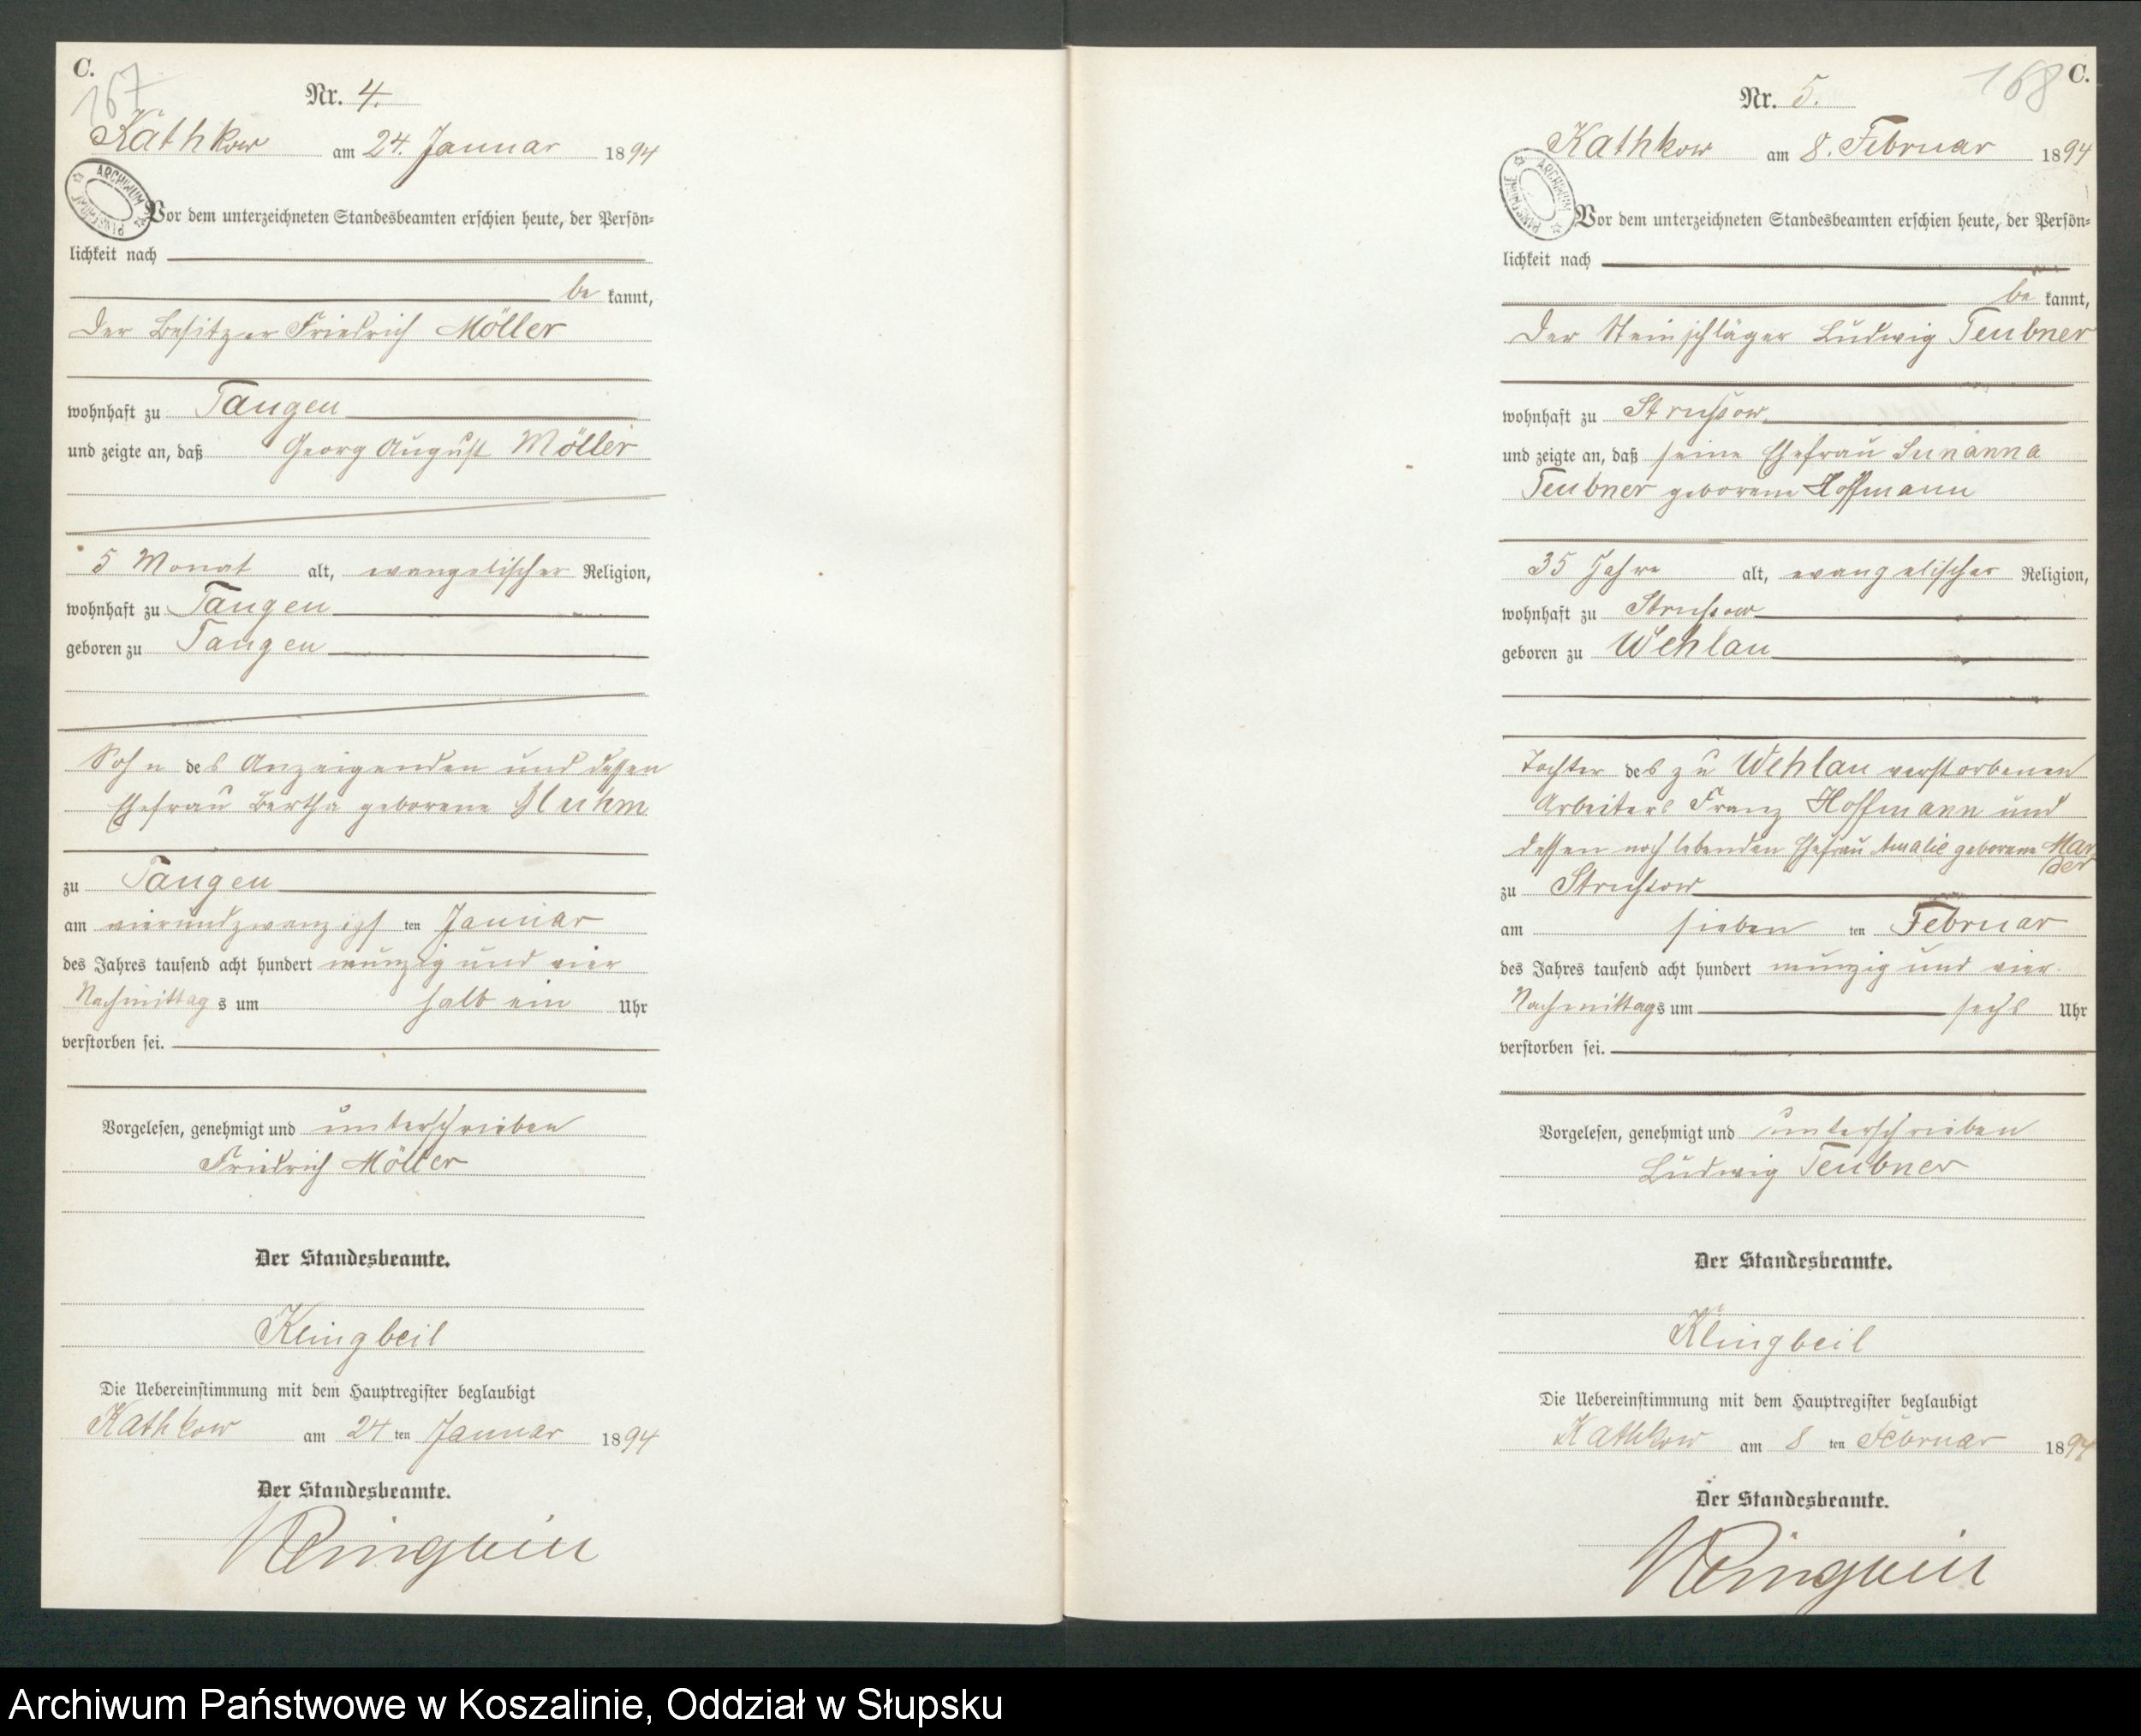 C.
167
Nr. 4.
Kathkow am 24. Januar 1894
ARCHIWUM PAŃSTWOWE
Vor dem unterzeichneten Standesbeamten erschien heute, der Persön-
lichkeit nach
be kannt,
der Besitzer Friedrich Möller
wohnhaft zu Tangen
und zeigte an, daß Georg August Möller
5 Monat alt, evangelischer Religion,
wohnhaft zu Tangen
geboren zu Tangen
Sohn des Anzeigenden und dessen
Ehefrau Bertha geborene Bluhm
zu Tangen
am vierundzwanzigsten Januar
des Jahres tausend acht hundert neunzig und vier
Nachmittags um halb ein Uhr
verstorben sei.
Vorgelesen, genehmigt und unterschrieben
Friedrich Möller
Der Standesbeamte.
Klingbeil
Die Uebereinstimmung mit dem Hauptregister beglaubigt
Kathkow am 24 ten Januar 1894
Der Standesbeamte.
Klingbeil
168
C.
Nr. 5.
Kathkow am 8. Februar 1894
ARCHIWUM PAŃSTWOWE
Vor dem unterzeichneten Standesbeamten erschien heute, der Persön-
lichkeit nach
be kannt,
der Steinschläger Ludwig Teubner
wohnhaft zu Strussow
und zeigte an, daß seine Ehefrau
Teubner geborene Hoffmann
35 Jahre alt, evangelischer Religion,
wohnhaft zu Strussow
geboren zu Wehlau
Tochter des zu Wehlau verstorbenen
Arbeiters Franz Hoffmann und
dessen noch lebenden Ehefrau Amalie geborene Mar
der
zu Strussow
am sieben ten Februar
des Jahres tausend acht hundert neunzig und vier
Nachmittags um sechs Uhr
verstorben sei.
Vorgelesen, genehmigt und unterschrieben
Ludwig Teubner
Der Standesbeamte.
Klingbeil
Die Uebereinstimmung mit dem Hauptregister beglaubigt
Kathkow am 8 ten Februar 1894
Der Standesbeamte.
Klingbeil
Archiwum Państwowe w Koszalinie, Oddział w Słupsku